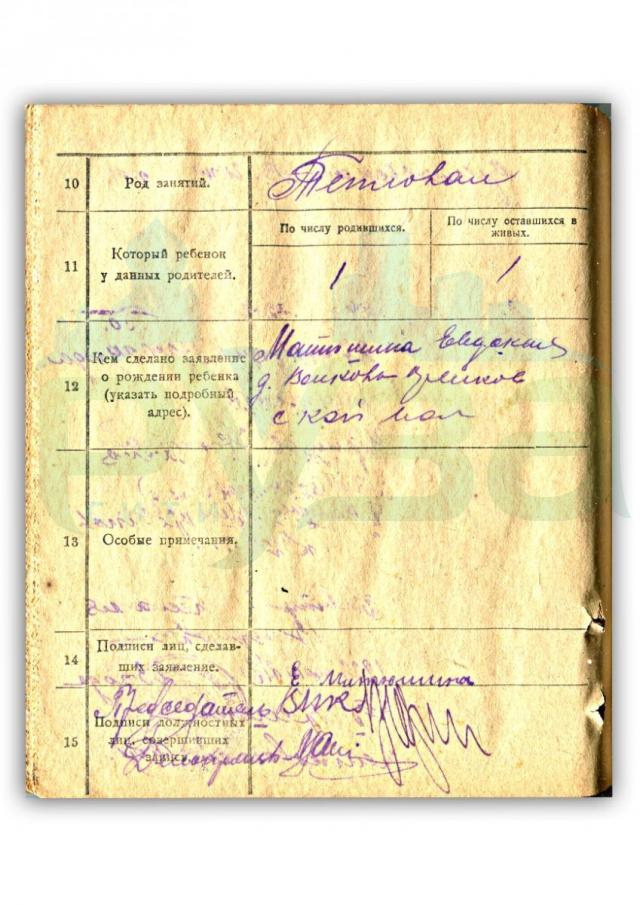 10 Род занятий.
По числу родившихся.
По числу оставшихся в живых.
11 Который ребенок
у данных родителей.
1 1
12 Кем сделано заявление
о рождении ребенка
(указать подробный
адрес).
Матюшина Евдокия
д.
ской вол
13 Особые примечания.
14 Подписи лиц, сделав-
ших заявление.
Е Матюшина
Председатель ВИК
15 Подписи должностных
лиц, совершивших
запись.